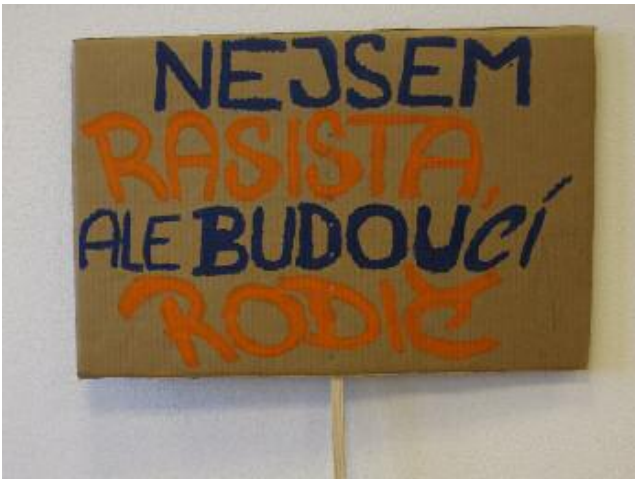 NEJSEM
RASISTA,
ALE BUDOUCÍ
RODIČ